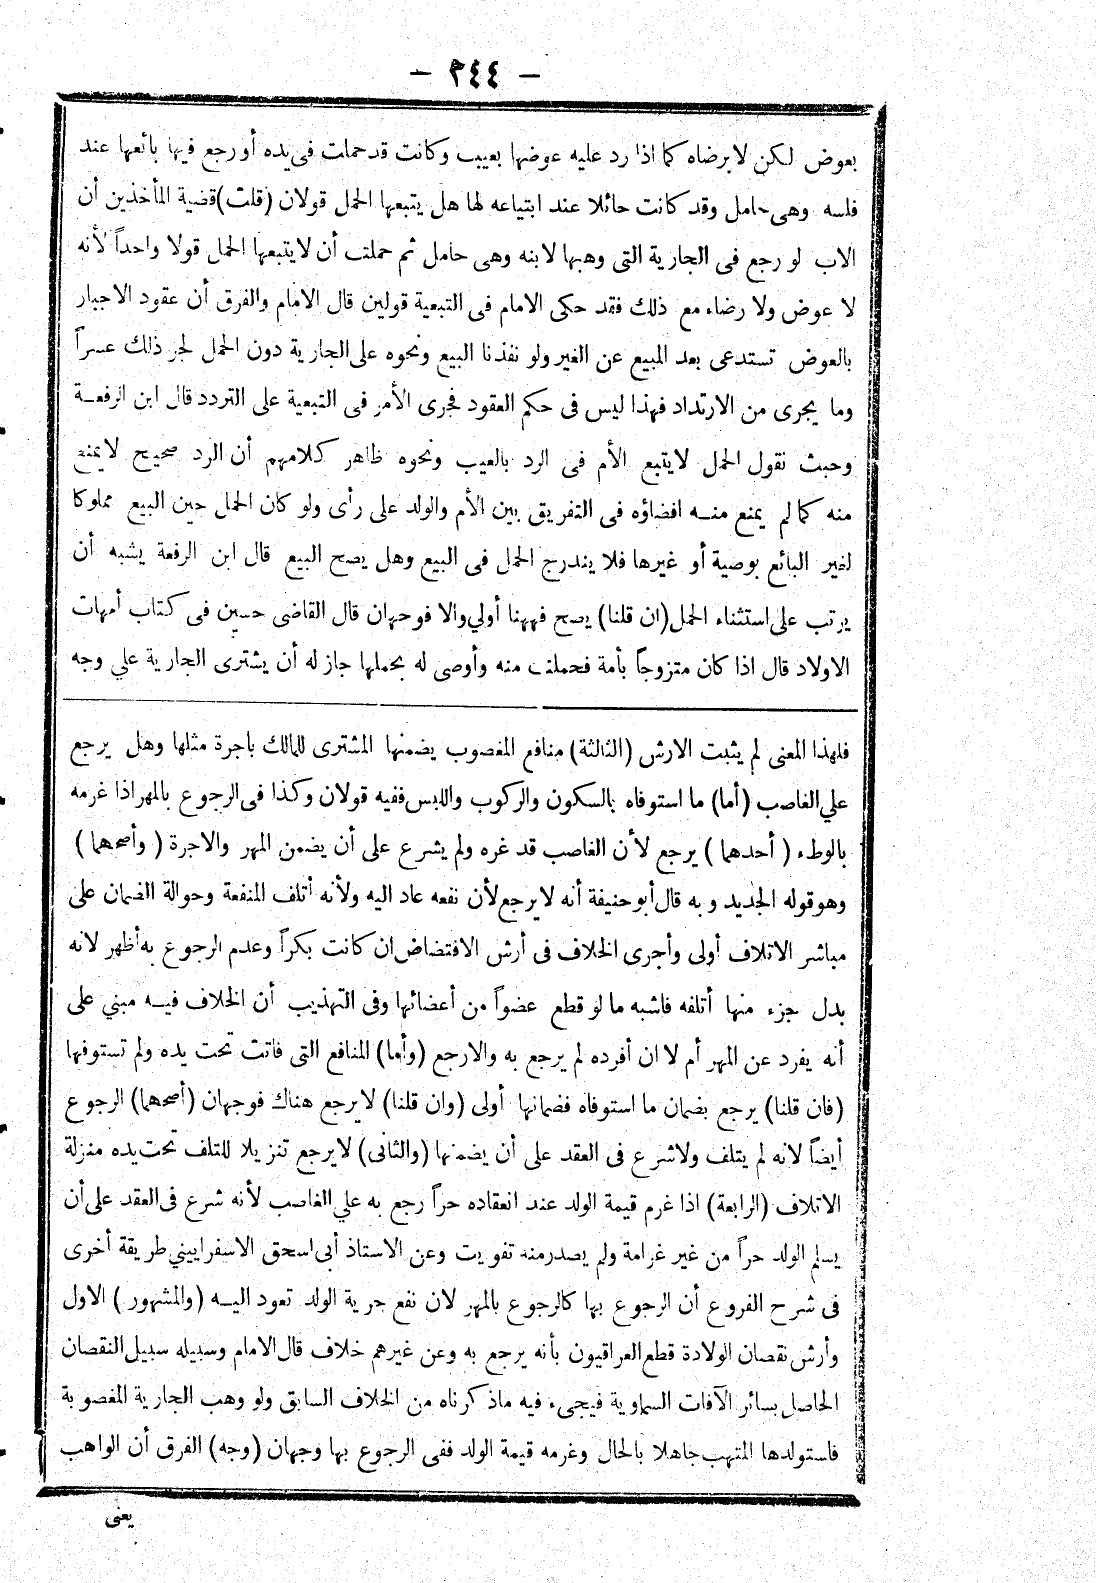 – ٣٤٤ –
بعوض لكن لا برضاه كما اذا رد عليه عوضها بعيب وكانت قد حملت فى يده أو رجع فيها بائعها عند
فلسه وهى حامل وقد كانت حائلا عند ابتياعه لها هل يتبعها الحمل قولان (قلت) قضية المأخذين أن
الاب لو رجع فى الجارية التى وهبها لابنه وهى حامل ثم حملت أن لا يتبعها الحمل قولا واحداً لأنه
لا عوض ولا رضاء مع ذلك فقد حكى الامام فى التبعية قولين قال الامام والفرق أن عقود الاجبار
بالعوض تستدعى بعد المبيع عن الغير ولو نفذنا البيع ونحوه على الجارية دون الحمل لجر ذلك عسراً
وما يجرى من الارتداد فهذا ليس فى حكم العقود فجرى الأمر فى التبعية على التردد قال ابن الرفعـة
وحيث نقول الحمل لا يتبع الأم فى الرد بالعيب ونحوه ظاهر كلامهم أن الرد صحيح لا يمنع
منه كما لم يمنع منـه افضاؤه فى التفريق بين الأم والولد على رأى ولو كان الحمل حين البيع مملوكا
لغير البائع بوصية أو غيرها فلا يندرج الحمل فى البيع وهل يصح البيع قال ابن الرفعة يشبه أن
يرتب على استثناء الحمل (ان قلنا) يصح فههنا أولي والا فوجهان قال القاضى حسين فى كتاب أمهات
الاولاد قال اذا كان متزوجاً بأمة فحملت منه وأوصى له بحملها جاز له أن يشترى الجارية علي وجه
فلهذا المعنى لم يثبت الارش (الثالثة) منافع المغصوب يضمنها المشترى للمالك باجرة مثلها وهل يرجع
علي الغاصب (أما) ما استوفاه بالسكون والركوب واللبس ففيه قولان وكذا فى الرجوع بالمهر اذا غرمه
بالوطء (أحدهما) يرجع لأن الغاصب قد غره ولم يشرع على أن يضمن المهر والاجرة (وأصحهما)
وهو قوله الجديد وبه قال أبو حنيفة أنه لا يرجع لأن نفعه عاد اليه ولأنه أتلف المنفعة وحوالة الضمان على
مباشر الاتلاف أولى وأجرى الخلاف فى أرش الافتضاض ان كانت بكراً وعدم الرجوع به أظهر لانه
بدل جزء منها أتلفه فاشبه ما لو قطع عضواً من أعضائها وفى التهذيب أن الخلاف فيـه مبني على
أنه يفرد عن المهر أم لا ان أفرده لم يرجع به والا رجع (وأما) المنافع التى فاتت تحت يده ولم تستوفها
(فان قلنا) يرجع بضمان ما استوفاه فضمانها أولى (وان قلنا) لا يرجع هناك فوجهان (أصحهما) الرجوع
أيضاً لانه لم يتلف ولا شرع فى العقد على أن يضمنها (والثانى) لا يرجع تنزيلا للتلف تحت يده منزلة
الاتلاف (الرابعة) اذا غرم قيمة الولد عند انعقاده حراً رجع به علي الغاصب لأنه شرع فى العقد على أن
يسلم الولد حراً من غير غرامة ولم يصدر منه تفويت وعن الاستاذ أبى اسحق الاسفرايينى طريقة أخرى
فى شرح الفروع أن الرجوع بها كالرجوع بالمهر لان نفع حرية الولد تعود اليـه (والمشهور) الاول
وأرش نقصان الولادة قطع العراقيون بأنه يرجع به وعن غيرهم خلاف قال الامام وسبيله سبيل النقصان
الحاصل بسائر الآفات السماوية فيجىء فيه ماذكرناه من الخلاف السابق ولو وهب الجارية المغصوبة
فاستولدها المتهب جاهلا بالحال وغرمه قيمة الولد ففى الرجوع بها وجهان (وجه) الفرق أن الواهب
يعنى